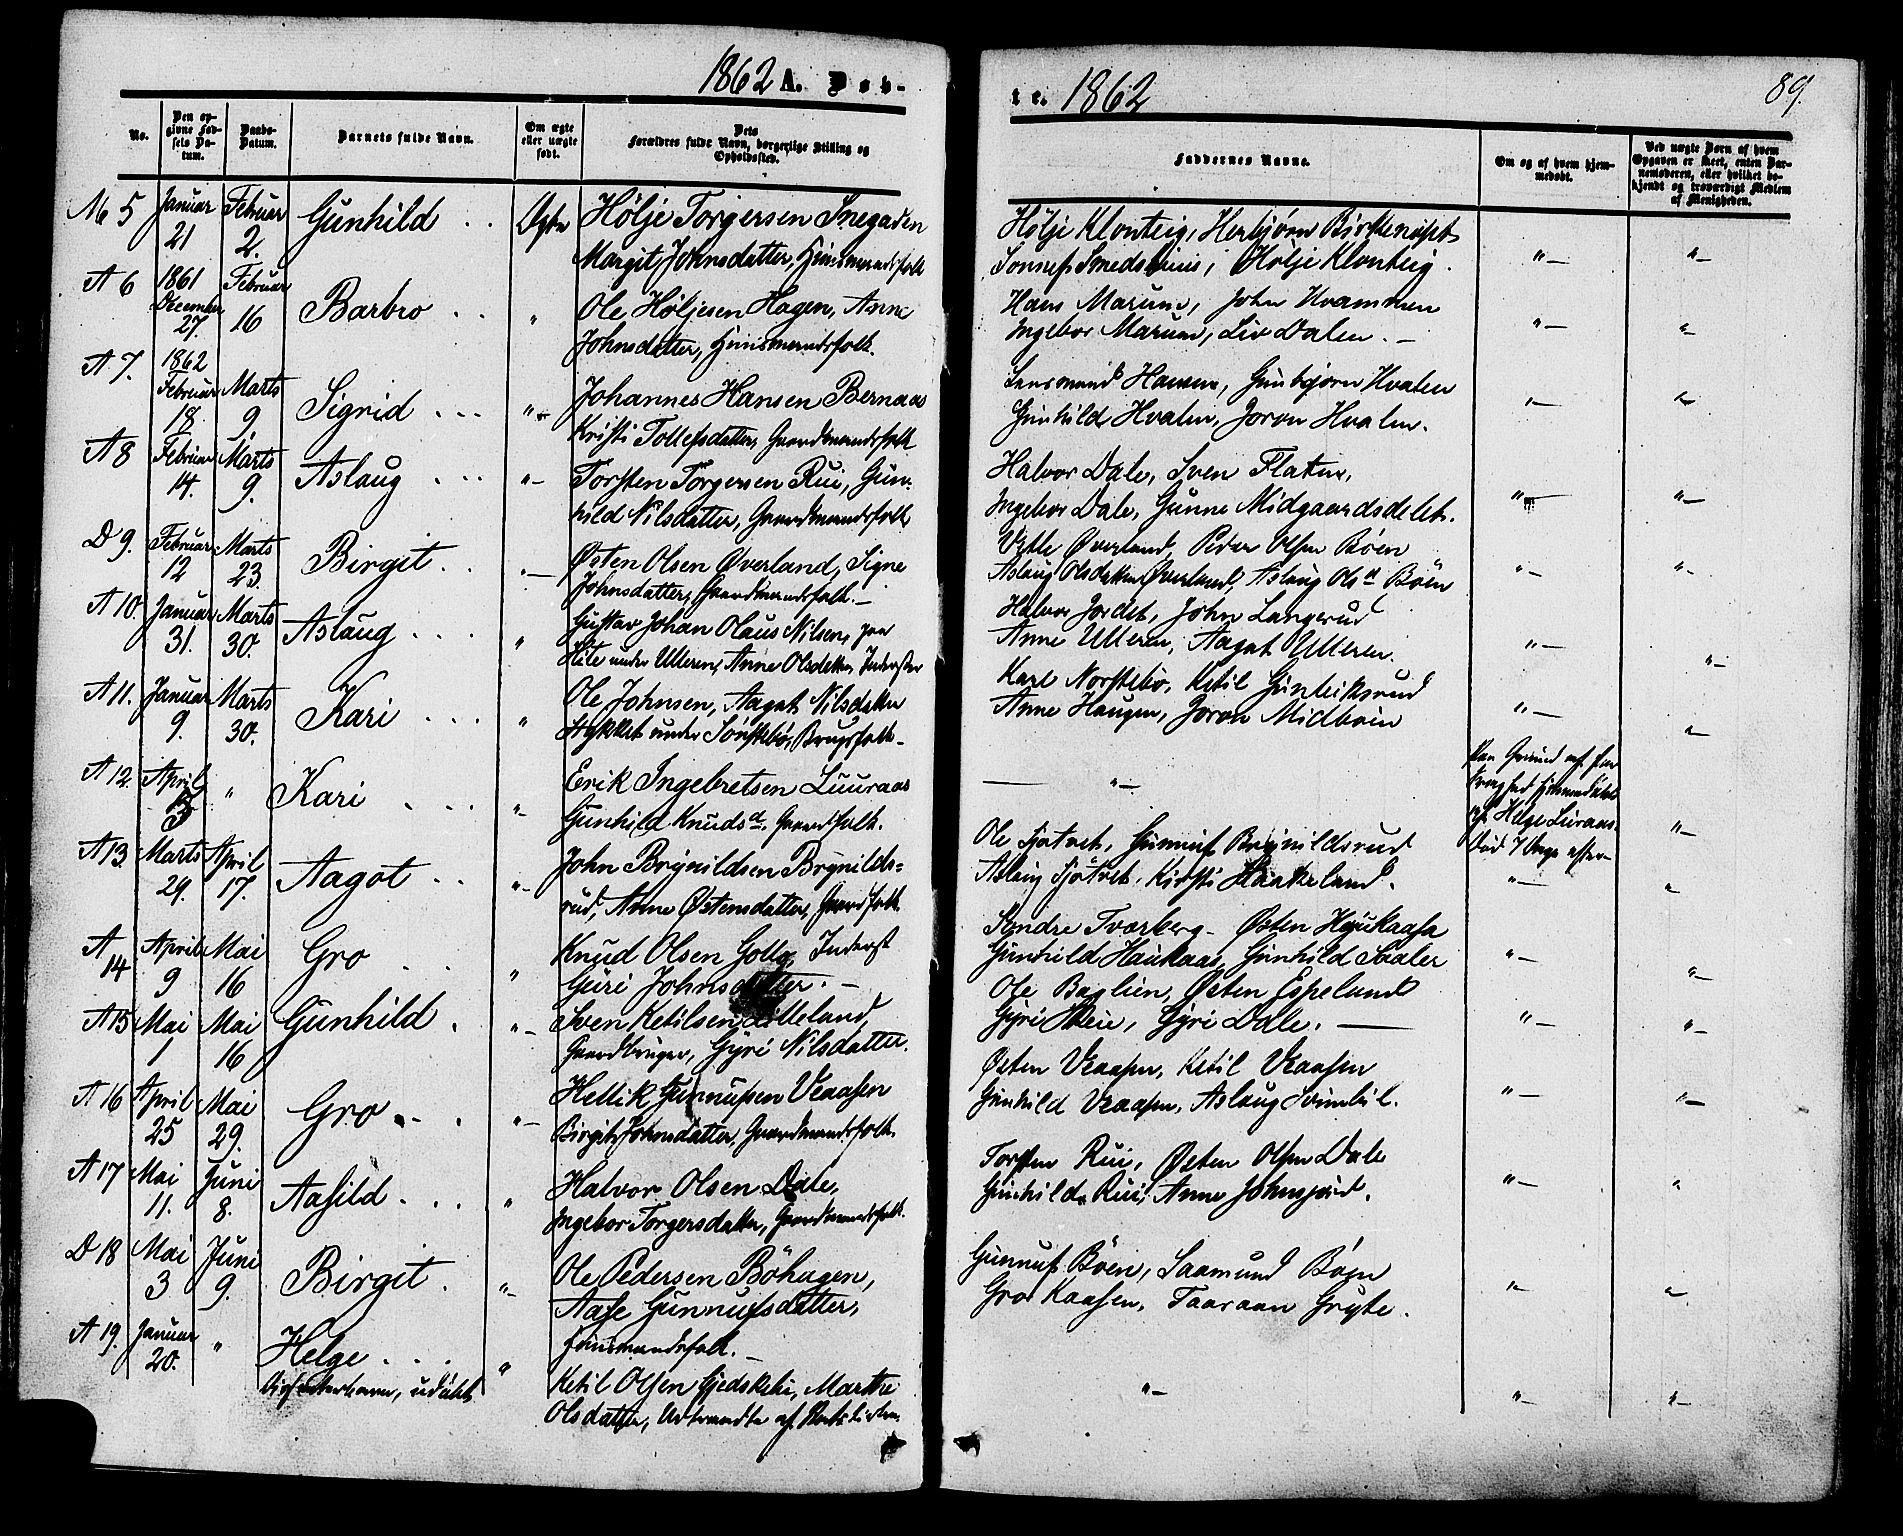 1862 A. Døb-
No.
Den op-
givne Fød-
sels Da-
tum.
Daabs-
Datum.
Barnets fulde Navn.
Om ægte
eller uægte
født.
Dets
Forældres fulde Navn, borgerlige Stilling og
Opholdssted.
5 Januar 21 Februar 2. Gunhild Ægte Hølje Torgersen Snegaden
Margit Johnsdatter, Huusmandsfolk
A 6 1861 December 27. Februar 16 Barbro " Ole Høljesen Hagen, Anne
Johnsdatter, Huusmandsfolk.
A 7. 1862 Februar 18. Marts 9. Sigrid " Johannes Hansen Bernaas
Kristi Tollefsdatter, Gaardmandsfolk
A 8 Februar 14. Marts 9. Aslaug " Torsten Torgersen Rui, Gun-
hild Nilsdatter, Gaardmandsfolk
D 9. Februar 12 Marts 23. Birgit " Østen Olsen Øverland, Signe
Johnsdatter, Gaardmandsfolk.
A 10. Januar 31. Marts 30. Aslaug " Gustav Johan Olaus Nilsen, paa
under Ulleren, Anne Olsdatter, Inderster
A 11. Januar 9. Marts 30. Kari " Ole Johnsen, Aagot Nilsdatter
Stykket under Sønstebø, Brugsfolk
A 12. April " Kari " Erik Ingebretsen Luuraas
Gunhild Knudsd. Gaardfolk.
A 13 Marts 29. April 17. Aagot " John Brynildsen Brynilds-
rud, Anne Østensdatter, Gaardfolk.
A 14 April 9 Mai 16 Gro " Knud Olsen Inderst
Guri Johnsdatter.
A 15 Mai 1 Mai 16 Gunhild " Sven Ketilsen Lilleland,
Gaardbruger, Gyri Nilsdatter.
A 16 April 25 Mai 29. Gro " Hellik Gunnufsen Vraasen
Birgit Johnsdatter, Gaardmandsfolk.
A 17 Mai 11. Juni 8. Aasild " Halvor Olsen Dale,
Ingebor Torgersdatter, Gaardmandsfolk.
D 18 Mai 3 Juni 9. Birgit " Ole Pedersen Bøhagen,
Aase Gunnufsdatter,
Huusmandsfolk.
A 19. Januar 20. " Helge " Ketil Olsen Marthe
udøbt Olsdatter,
te. 1862
89.
Faddernes Navne.
Om og af hvem hjem-
medøbt.
Ved uægte Børn af hvem
Opgaven er skeet, enten Bar-
nemoderen, eller hvilket be-
kjendt og troværdigt Medlem
af Menigheden.
Hølje Klonteig, Herbjørn
Hølje Klonteig.
Hans Marum, John Kvammen
Ingebor Marum, Liv Dalen.
Hansen, Gunbjørn Hvalen
Gunhild Hvalen, Joron Hvalen.
Halvor Dale, Sven Flaten,
Ingebor Dale, Gunne Midgaardsdelet.
Vetle Øverland, Peder Olsen Bøen
Aslaug Olsdatter Øverland, Aslaug Olsd. Bøen
Halvor Jordet, John Langerud
Anne Ulleren, Aagot Ulleren.
Karl Norstebø, Ketil Gunleiksrud
Anne Haugen, Joron Midbøen
"
Paa Grund af
hjemmedøbt
af Helge Luraas.
Død 7 Dage efter
Ole Sjøtvet, Gunnuf Brynildsrud
Aslaug Sjøtvet, Kirsti Haakeland.
Sondre Tværberg, Østen Haukaasa
Gunhild Haukaas, Gunhild Saaler
Ole Baglien, Østen Espeland
Gyri Dale.
Østen Vraasen, Ketil Vraasen
Gunhild Vraasen, Aslaug Svimbil.
Torsten Rui, Østen Olsen Dale
Gunhild Rui, Anne Johnsjord.
Gunnuf Bøen, Saamund Bøen
Gro Kaasen, Taaraan Gryte.
"